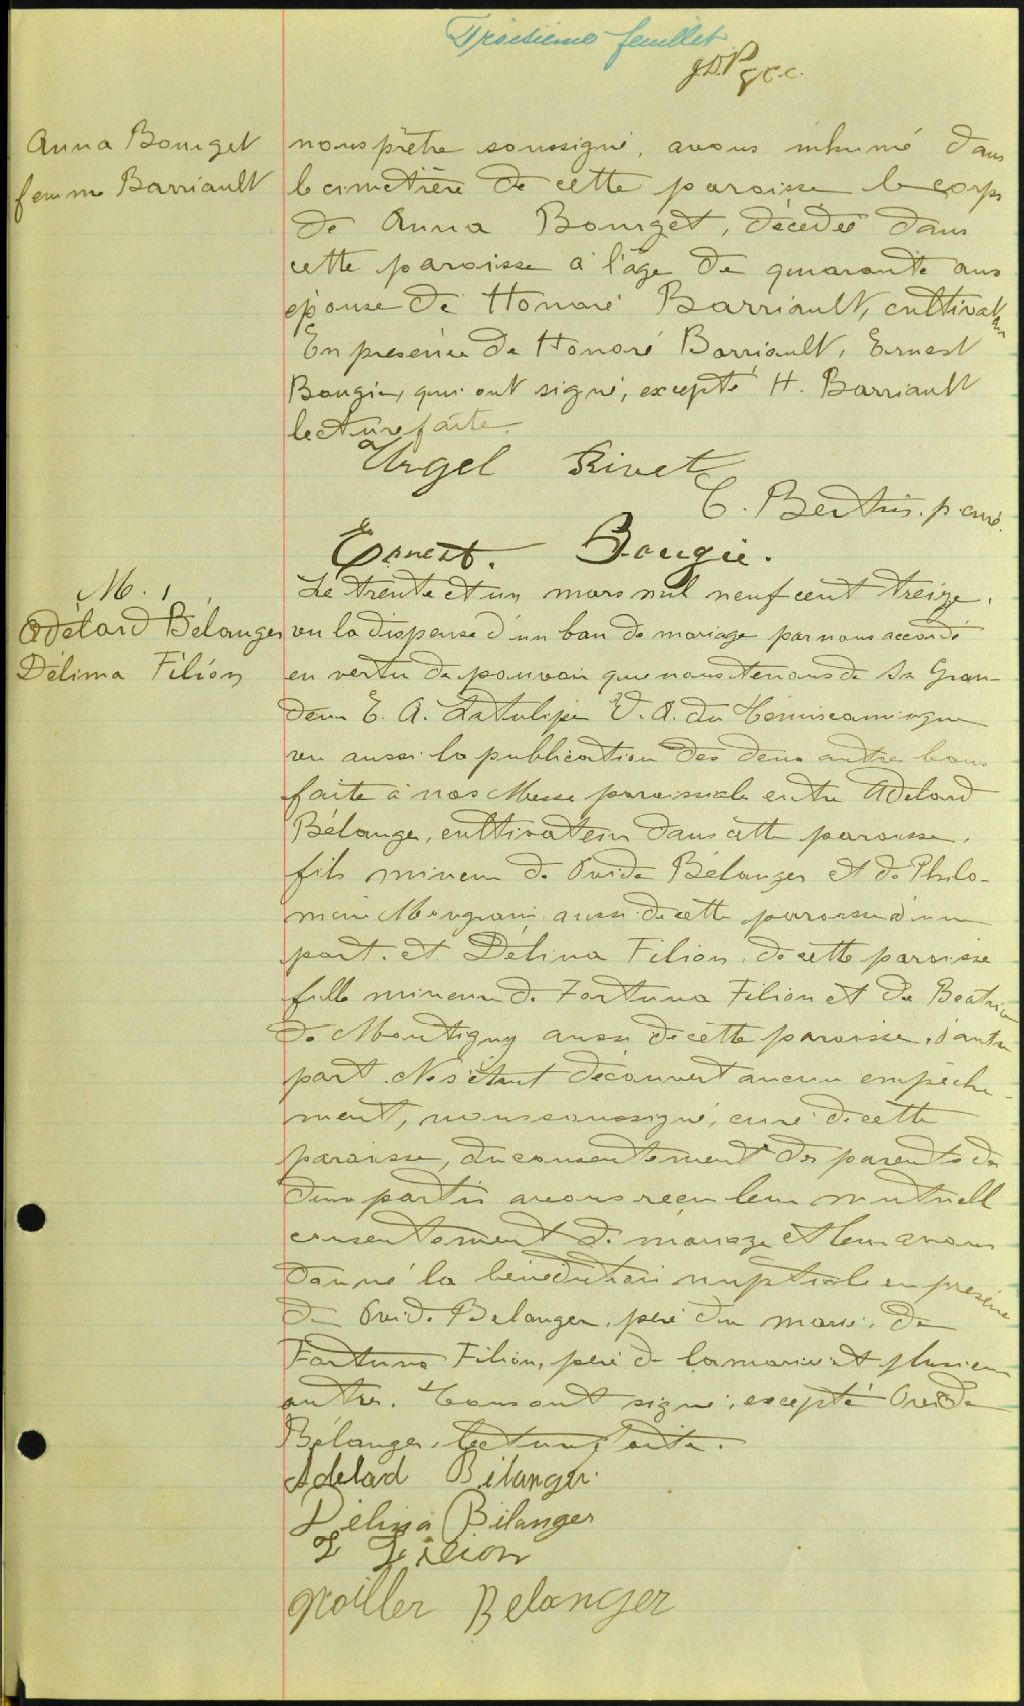 Troisième feuillet
Anna Bourget
femme Barriault
nous prêtre soussigné, avons inhumé dans
le cimetière de cette paroisse le corps
de Anna Bourget, décédée dans
cette paroisse à l'âge de quarante ans
épouse de Honoré Barriault, cultivateur
En présence de Honoré Barriault, Ernest
Bougie, qui ont signé, excepté H. Barriault
lecture faite.
Urgel Rivet
p. curé.
Ernest. Bougie.
M. 1
Adélard Bélanger
Délima Filion
Le trente et un mars mil neuf cent treize,
vu la dispense d'un ban de mariage par nous accordé
en vertu de pouvoir que nous tenons de Sa Gran-
deur E. A. Latulipe V. A. du Témiscamingue
vu aussi la publication des deux autres bans
faite à nos Messe paroissiale entre Adelard
Bélanger, cultivateur dans cette paroisse,
fils mineur de Ovide Bélanger et de Philo-
mène Mongrain aussi de cette paroisse d'une
part. et Délina Filion, de cette paroisse
fille mineure de Fortuna Filion et de Béatrice
de Montigny aussi de cette paroisse, d'autre
part. Ne s'étant découvert aucun empêche-
ment, nous soussigné, curé de cette
paroisse, du consentement des parents des
deux partis avons reçu leur mutuell
consentement de mariage et leur avons
donné la bénédiction nuptiale en présence
de Ovide Belanger, père du marié, de
Fortuna Filion, père de la mariée et plusieurs
autres. Tous ont signé, excepté Ovide
Bélanger, lecture faite.
Adelad Bilanger.
Délina Bilanger
F Filion
Belanger